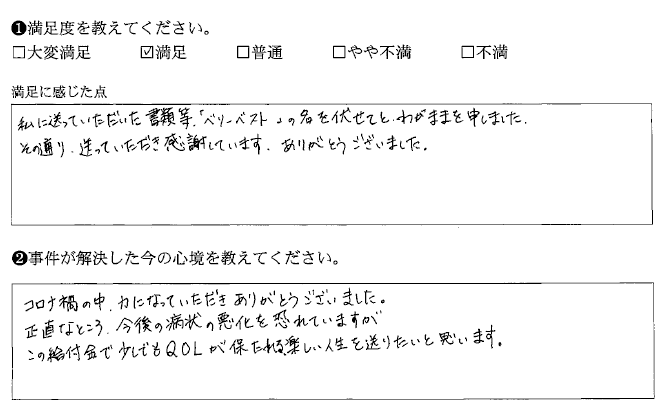 ❶満足度を教えてください。
□大変満足 ☑満足 □普通 □やや不満 □不満
満足に感じた点
私に送っていただいた書類等、「ベリーベスト」の名を伏せてと、わがままを申しました。
その通り、送っていただき感謝しています。ありがとうございました。
❷事件が解決した今の心境を教えてください。
コロナ禍の中、力になっていただきありがとうございました。
正直なところ、今後の病状の悪化を恐れていますが
この給付金で少しでもQOLが保たれる、楽しい人生を送りたいと思います。